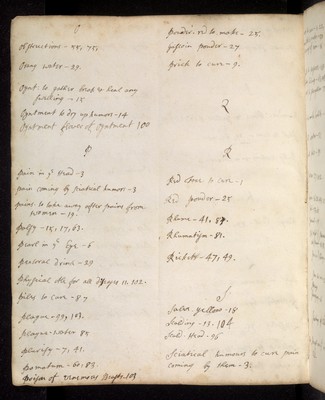 O
Obstructions - 55, 75.
Orang water - 29.
Oynt: to gather break & heal any
swelling - 15
Oyntment to dry up humors - 14
Oyntment flower of Oyntment 100
P
Pain in yᵉ Head - 3
pain coming by sciatical humors - 3
pains to take away after paines from
women - 19.
Palsy - 15, 17, 63.
Pearl in yᵉ Eye - 6
Pectoral drink - 29
Physical Ale for all diseases 11, 102.
piles to cure - 87
plague - 99, 103.
plague-water 88
Plurisy - 7, 41.
Pomatum - 60, 83
Poison of Venomous Beasts. 103
Pouder red to make - 25.
powder - 27
Prick to cure - 9.
Q
R
Red Face to cure - 1
Red powder - 25
Rheum - 41, 87.
Rheumatism - 81.
Ricketts - 47, 49.
S
Salve yellow - 18
Scalding - 13, 104
Scald Head - 96
Sciatical humours to cure pain
coming by them - 3.